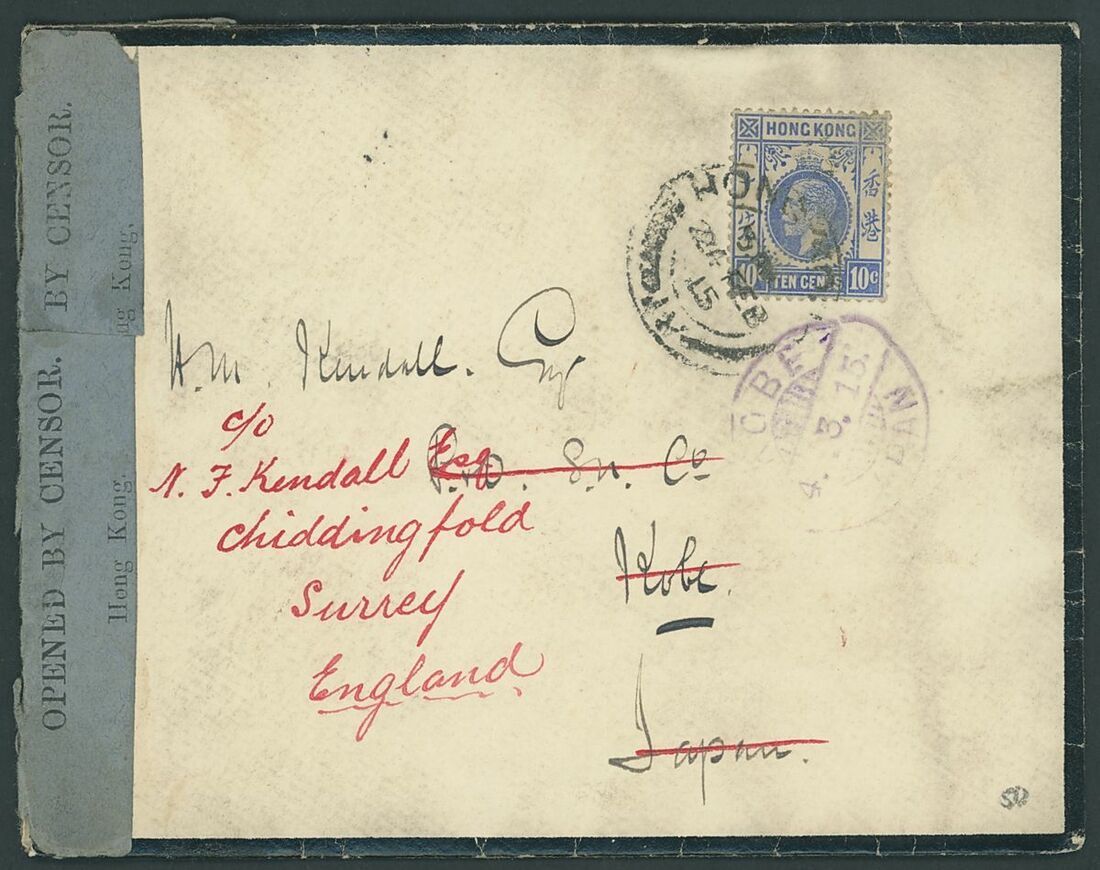 BY CENSOR.
OPENED BY CENSOR.
Hong Kong
Kong,
HONG KONG
香港
10c TEN CENTS 10c
24 FEB
15
KOBE
JAPAN
4. 3. 15.
H. M. Kendall. Esq
c/o
N. F. Kendall Esq
P. & O. S. N. Co
Chiddingfold
Kobe.
Surrey
England
Japan.